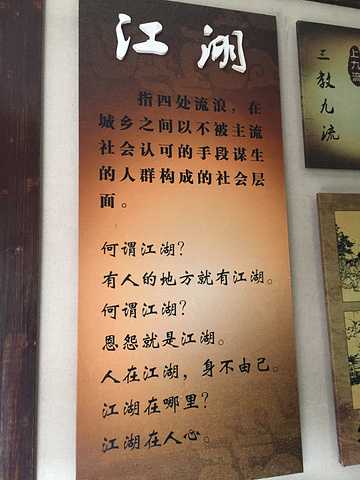 江湖
指四处流浪，在
城乡之间以不被主流
社会认可的手段谋生
的人群构成的社会层
面。
何谓江湖？
有人的地方就有江湖。
何谓江湖？
恩怨就是江湖。
人在江湖，身不由己。
江湖在哪里？
江湖在人心。
上九流
三教九流